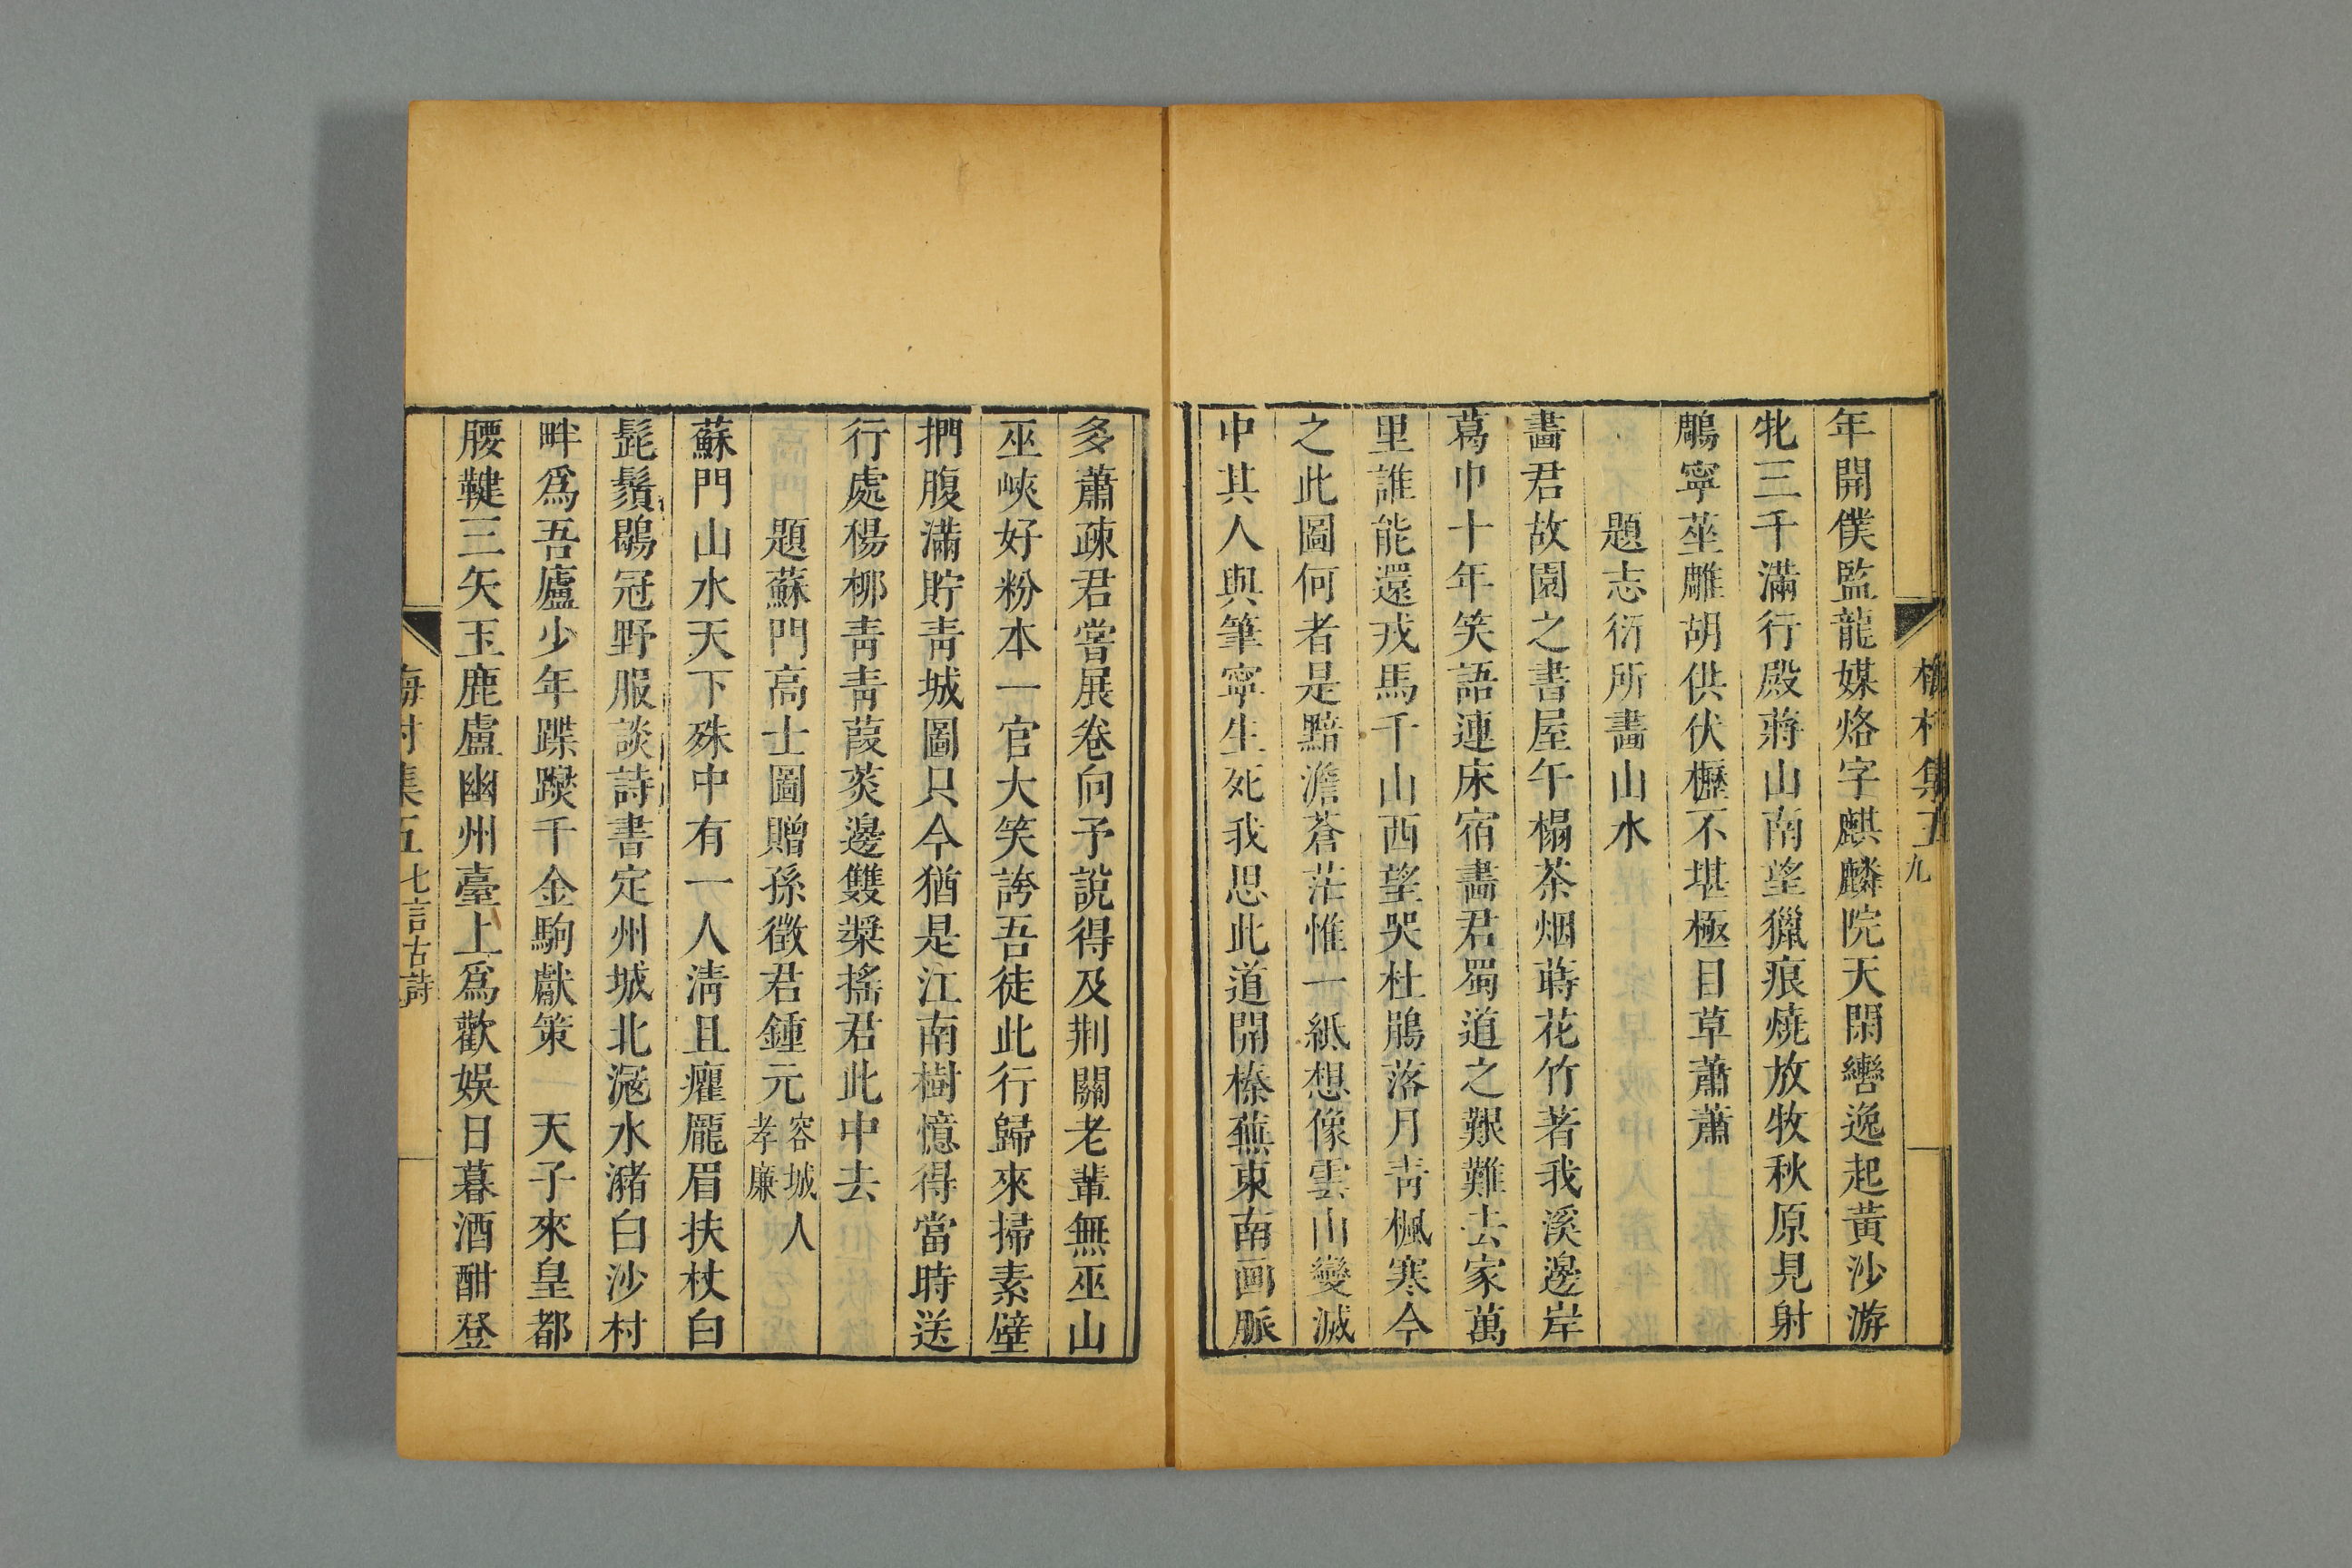 梅村集五 九
年開僕監龍媒烙字麒麟院天閑轡逸起黃沙游
牝三千滿行殿蔣山南望獵痕燒放牧秋原見射
鵰寧莝雕胡供伏櫪不堪極目草蕭蕭
題志衍所畫山水
畫君故園之書屋午榻茶烟蒔花竹著我溪邊岸
葛巾十年笑語連床宿畫君蜀道之艱難去家萬
里誰能還戎馬千山西望哭杜鵑落月青楓寒今
之此圖何者是黯澹蒼茫惟一紙想像雲山變滅
中其人與筆寧生死我思此道開榛蕪東南画脈
多蕭疎君嘗展卷向予說得及荆關老輩無巫山
巫峽好粉本一官大笑誇吾徒此行歸來掃素壁
捫腹滿貯青城圖只今猶是江南樹憶得當時送
行處楊柳青青葭菼邊雙槳搖君此中去
題蘇門高士圖贈孫徵君鍾元 容城人孝廉
蘇門山水天下殊中有一人淸且癯龎眉扶杖白
髭鬚鶡冠野服談詩書定州城北滱水瀦白沙村
畔爲吾廬少年蹀躞千金駒獻策 天子來皇都
腰鞬三矢玉鹿盧幽州臺上爲歡娛日暮酒酣登
梅村集五 七言古詩